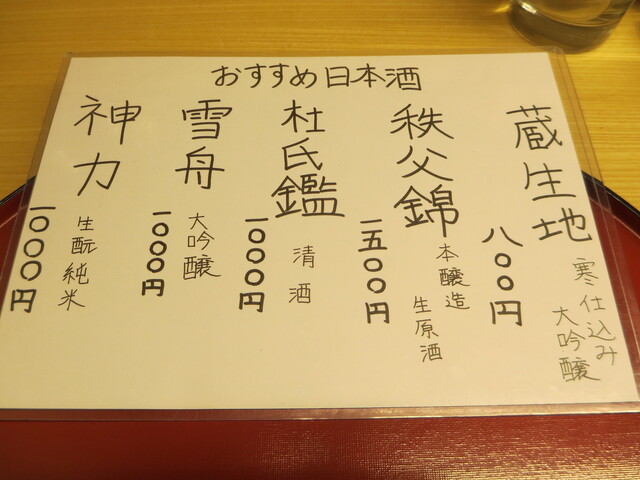 おすすめ日本酒
蔵生地
寒仕込み
大吟醸
八〇〇円
秩父錦
本醸造
生原酒
一五〇〇円
杜氏鑑
清酒
一〇〇〇円
雪舟
大吟醸
一〇〇〇円
神力
生酛純米
一〇〇〇円